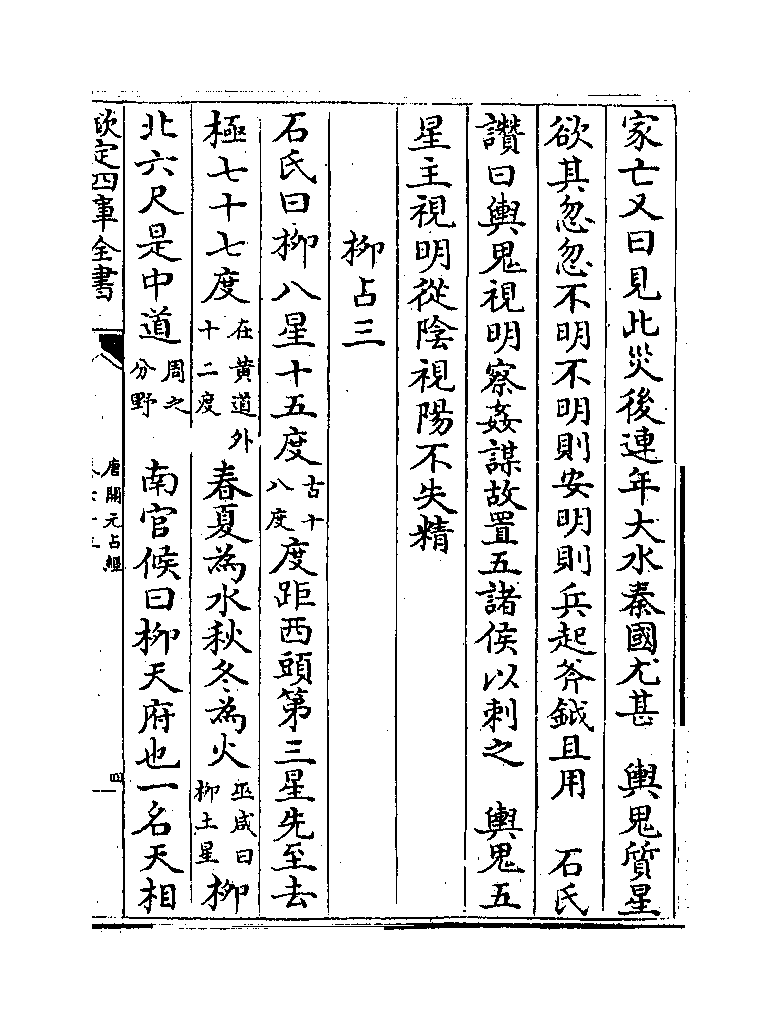 家亡又曰見此災後連年大水秦國尤甚　輿鬼質星
欲其忽忽不明不明則安明則兵起斧鉞且用　石氏
讃曰輿鬼視明察姦謀故置五諸侯以刺之　輿鬼五
星主視明從陰視陽不失精
柳占三
石氏曰柳八星十五度古十八度度距西頭第三星先至去
極七十七度在黄道外十二度春夏為水秋冬為火巫咸曰柳土星柳
北六尺是中道周之分野　南官候曰柳天府也一名天相
欽定四庫全書
唐開元占經
四